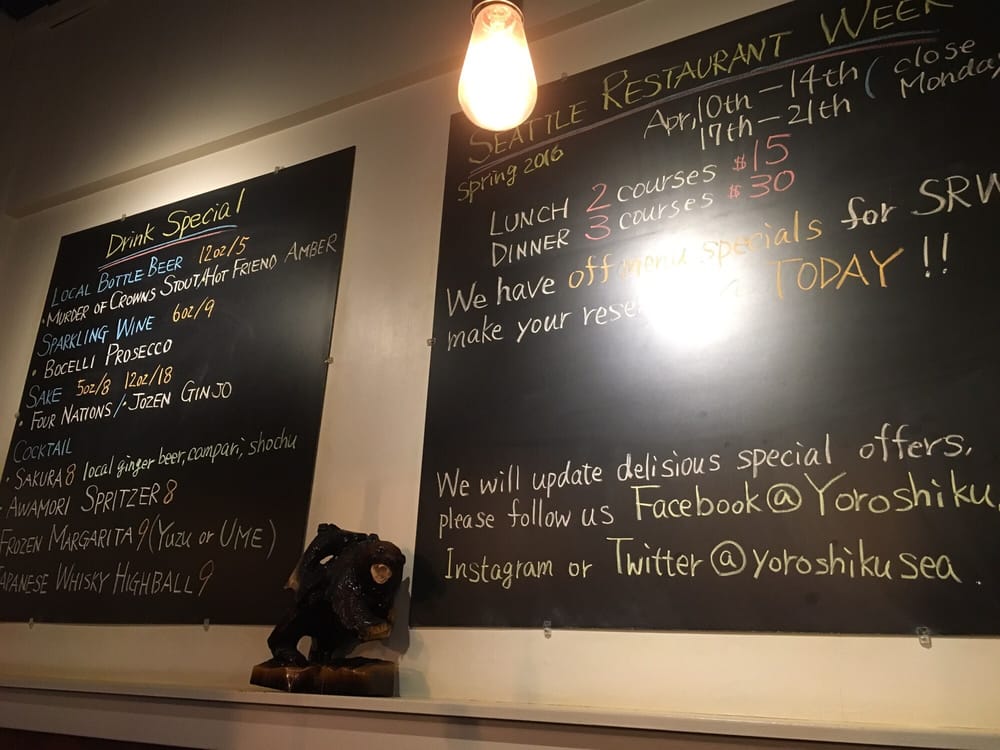 Drink Special
LOCAL BOTTLE BEER 12oz/5
• MURDER OF CROWNS STOUT/HOT FRIEND AMBER
SPARKLING WINE 6oz/9
• BOCELLI PROSECCO
SAKE 5oz/8 12oz/18
• FOUR NATIONS/• JOZEN GINJO
COCKTAIL
• SAKURA 8 local ginger beer, campari, shochu
• AWAMORI SPRITZER 8
FROZEN MARGARITA 9 (YUZU or UME)
JAPANESE WHISKY HIGHBALL 9
SEATTLE RESTAURANT WEEK
Spring 2016
Apr, 10th - 14th ( close
17th - 21th Monday
LUNCH 2 courses $15
DINNER 3 courses $30
We have off menu specials for SRW
make your TODAY !!
We will update delisious special offers.
please follow us Facebook@Yoroshiku,
Instagram or Twitter@yoroshikusea.